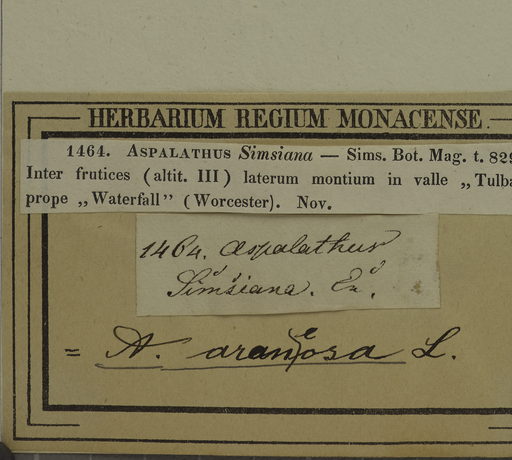 HERBARIUM REGIUM MONACENSE.
1464. ASPALATHUS Simsiana — Sims. Bot. Mag. t. 829
Inter frutices (altit. III) laterum montium in valle „Tulba
prope „Waterfall” (Worcester). Nov.
1464. Aspalathus
Simsiana. En.
= A. araneosa L.